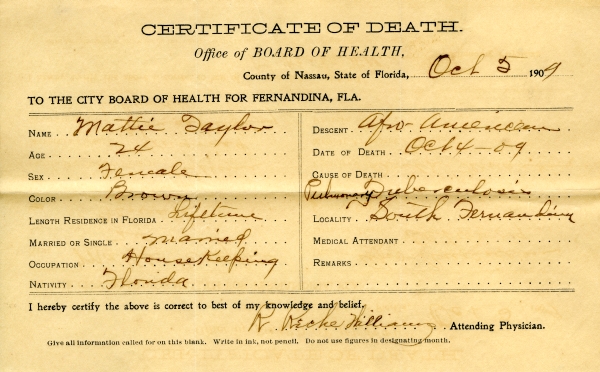 CERTIFICATE OF DEATH.
Office of BOARD OF HEALTH,
County of Nassau, State of Florida, Oct 5 1909
TO THE CITY BOARD OF HEALTH FOR FERNANDINA, FLA.
NAME Mattie Taylor
AGE 24
SEX Female
COLOR Brown
LENGTH RESIDENCE IN FLORIDA Lifetime
MARRIED OR SINGLE married
OCCUPATION Housekeeping
NATIVITY Florida
DESCENT Afro American
DATE OF DEATH Oct 4-09
CAUSE OF DEATH
Pulmonary Tuberculosis
LOCALITY South Fernandina
MEDICAL ATTENDANT
REMARKS
I hereby certify the above is correct to best of my knowledge and belief,
R. Williams Attending Physician.
Give all information called for on this blank. Write in ink, not pencil. Do not use figures in designating month.